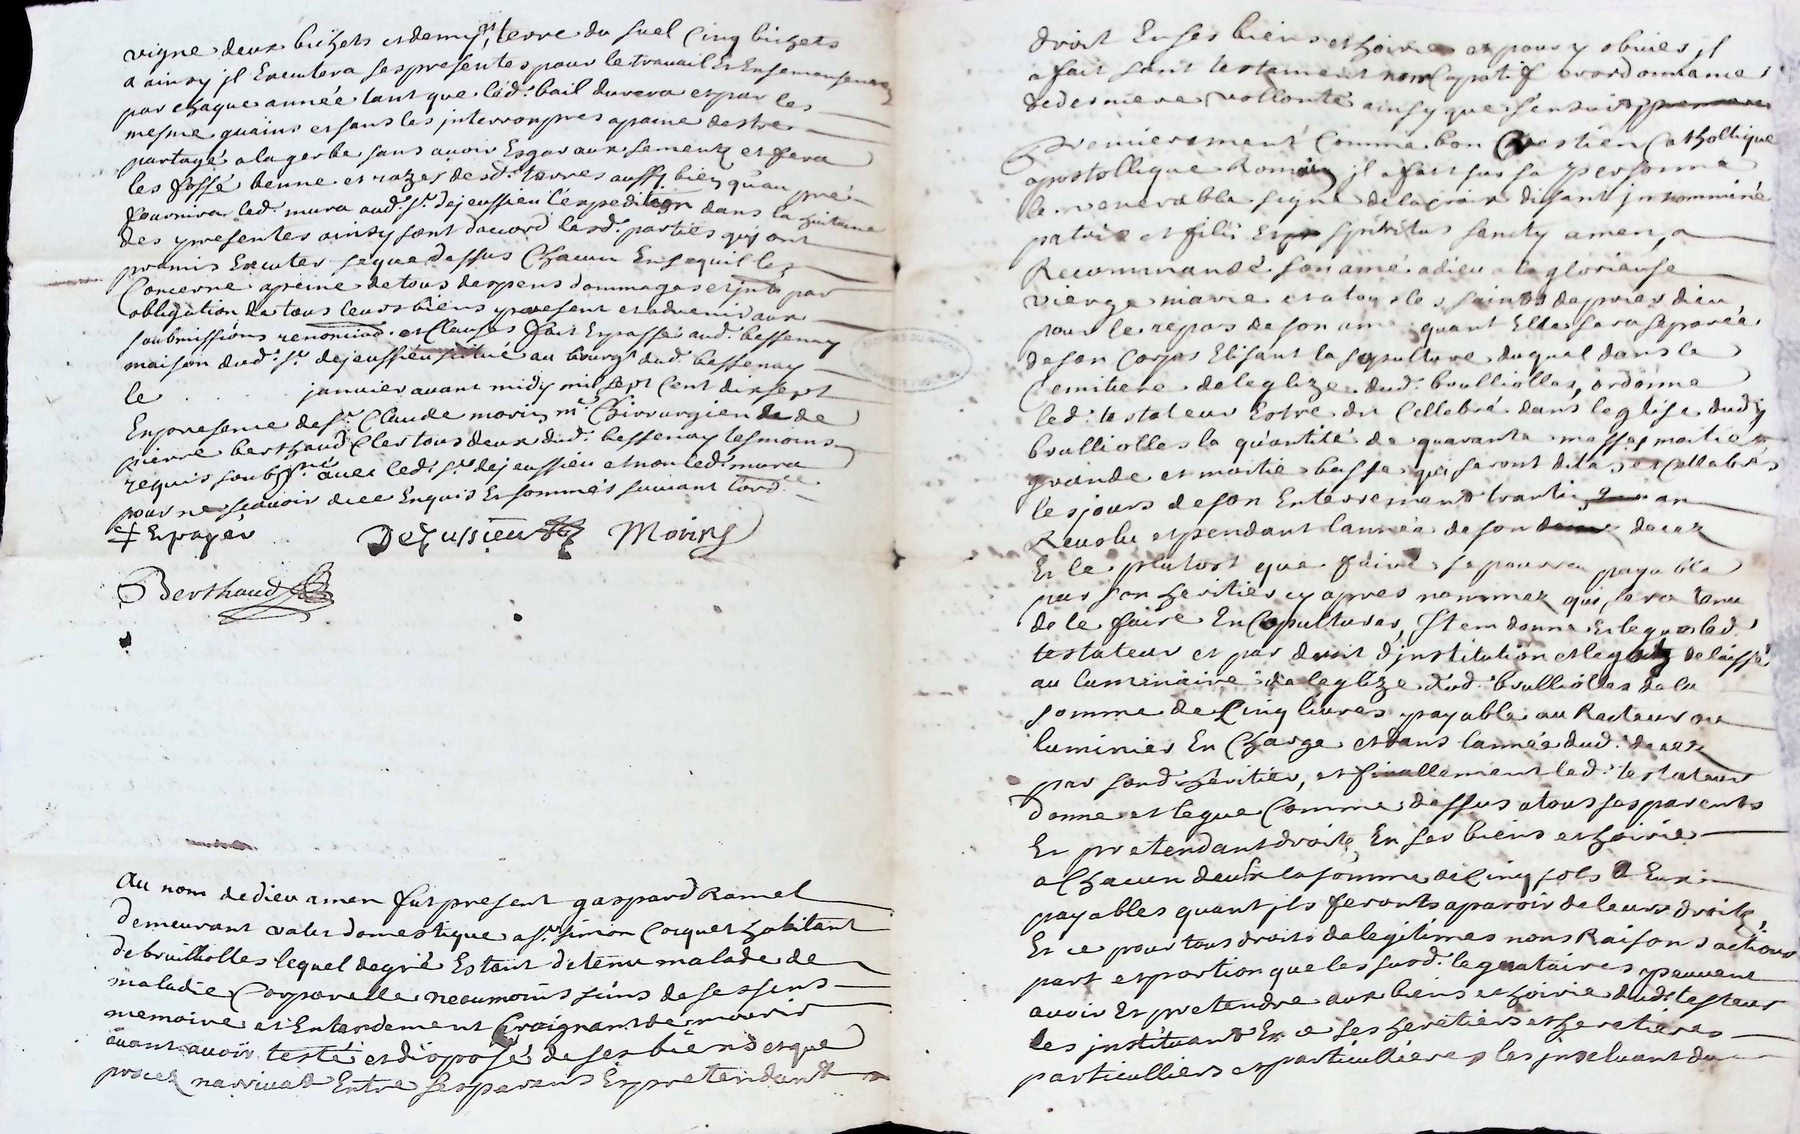 vigne deux bichets et demy, terre du suel cinq bichets
a ainsy il Executera ses presentes pour le travail Et Ensemensement
par chaque année tant que led. bail durera et par les
mesme quains et sans les interrompres a paine destre
partagé a la gerbe sans avoir Esgar aux sementz et fera
les fossé benne et razes desd. terres aussy bien qu'au pré
fournira led. mura aud. sr. dejeussieu l'expedition dans la huitaine
des presentes ainsy sont d'accord lesd. parties qui ont
promis Executer se que dessus chacun En se quil les
Concerne a peine de tous despens dommages et jnts par
obligation de tous leurs biens present et advenir aux
soubmissions renonciaō. et Clauses fait Et passé aud. bessenay
maison dud. sr. dejeussieu situé au bourg dud. bessenay
le janvier avant midy mil sept cent dix sept
En presence de sr. Claude morin me. Chirurgien de
pierre berthaud Cler tous deux dud. bessenay tesmoins
requis soubsné avec led. sr. dejeussieu et non led. mura
pour ne scavoir de ce Enquis Et sommés suivant l'ordce
‡ Et payer
DeJussieu Morin
Berthaud
Au nom de dieu amen fut present gaspard Ramel
demeurant valet domestique a sr. simon Coquet habitant
de brulliolles lequel de gré Estant detenu malade de
maladie Corporelle neaumoins sains de ses sens
memoire et Entendement Craignant de mourir
avant avoir testé et disposé de ses biens et que
procez n'arrivat Entre ses parens Et pretendant
droit En ses biens et hoiries et pour y obvier il
a fait sont testament noncupatif et ordonnance
de derniere vollonté ainsy que s'ensuit
Premierement Comme bon Chrestien Catholique
apostollique Romain il a fait sur sa personne
le venerable signe de la croix disant in nomminé
patris et filii Et spiritus sancty amen, a
Recommandé son amé a dieu a la glorieuse
vierge marie et a tous les saints de prier dieu
pour le repos de son ame quant Elle sera separéé
de son Corps Elisant la sepulture duquel dans le
Cemitiere de leglize dud. brulliolles, ordonne
led. testateur Estre dit Cellebré dans l'eglise dud.
brulliolles la quantité de quarante messes moitié
grande et moitie basse qui seront dites et cellebrés
les jours de son Enterrement trantin an
Revolu et pendant l'année de son decez
Et le plutost que faire se pourra payable
par son heritier cy apres nommez qui sera tenu
de le faire En Cepultures, Item donne Et legue led.
testateur et par droit d'institution et legatz delaissé
au luminaire de leglize dud. brulliolles de la
somme de Cinq livres payable au Recteur ou
luminier En Charge et dans l'année dud. decez
par sond. héritier, et finallement led. testateur
donne et legue Comme dessus a tous ses parents
Et pretendant droits En ses biens et hoirie
a Chacun deux la somme de Cinq sols a Eux
payables quant ils feronts aparoir de leurs droits,
Et ce pour tous droits de legitimes noms Raisons actions
part et portion que les susd. legatataires peuvent
avoir Et pretendre aux biens et hoirie dud. testateur
les instituant En ce ses heretiers et heretieres
particulliers et particullieres les incluant du